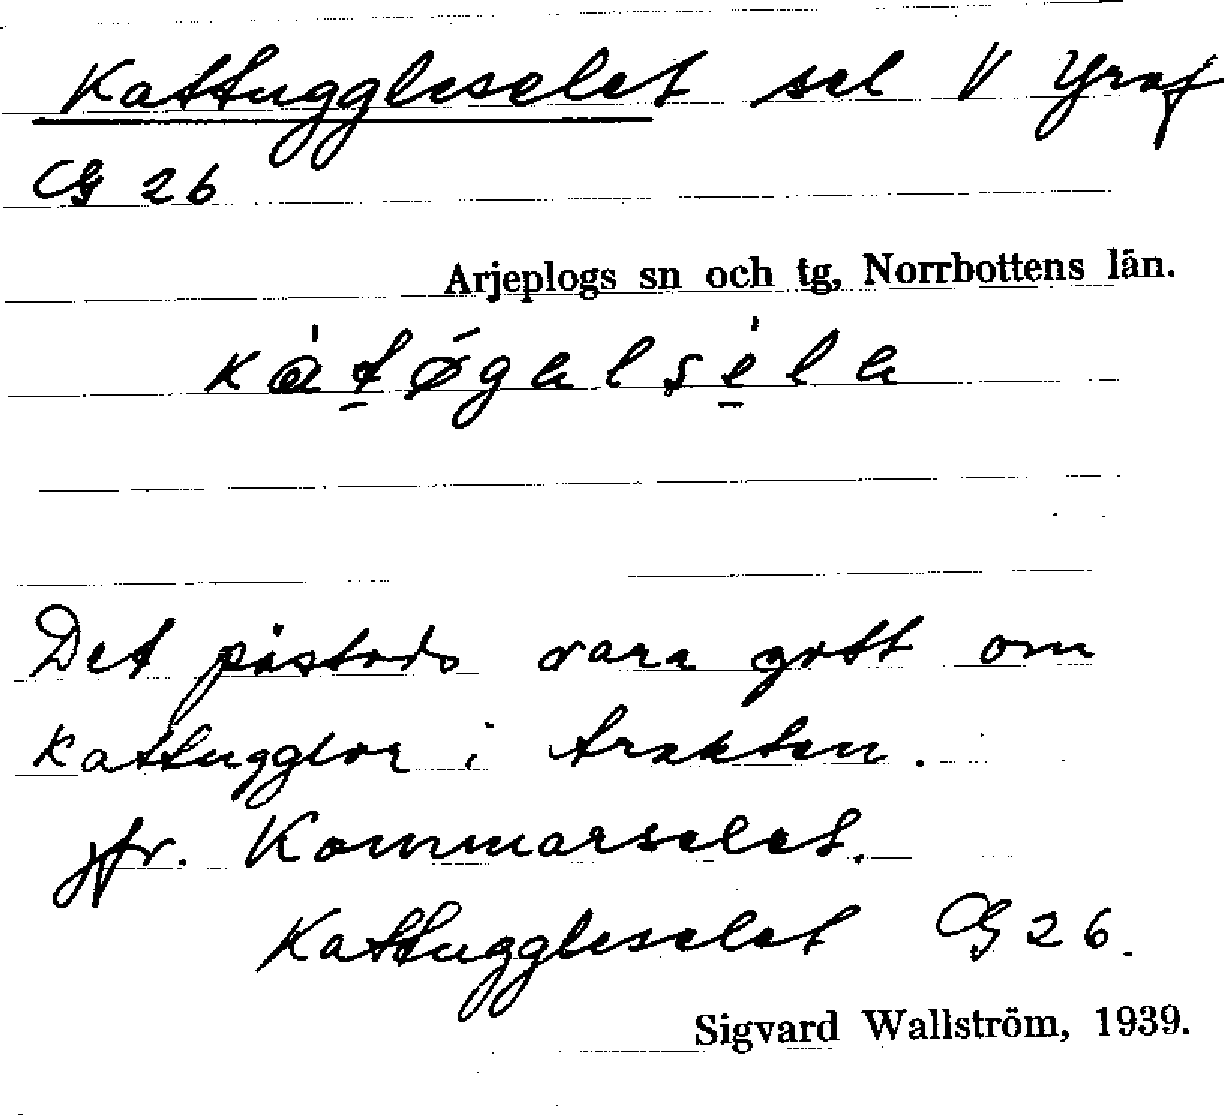 Kattuggleselet sel V Yraf
G 26
Arjeplogs sn och tg, Norrbottens län.
Det påstods vara gott om
kattugglor i trakten.
jfr. Kommarselet.
Kattuggleselet G 26.
Sigvard Wallström, 1939.